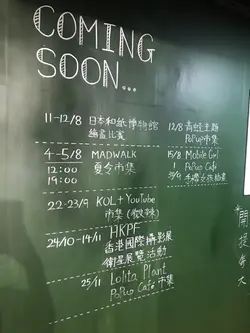 COMING
SOON...
11-12/8 日本和紙博物館
繪畫比賽
4-5/8 MADWALK
12:00 夏令市集
19:00
22-23/9 KOL+YouTube
市集(微辣)
24/10-14/11 HKPF
香港國際攝影展
衛星展覽活動
25/11 Lolita Plant
PoPup Cafe 市集
12/8 青蛙主題
PoPup市集
15/8 Mobile Girl
PoPup Cafe
手機女孩
開
提